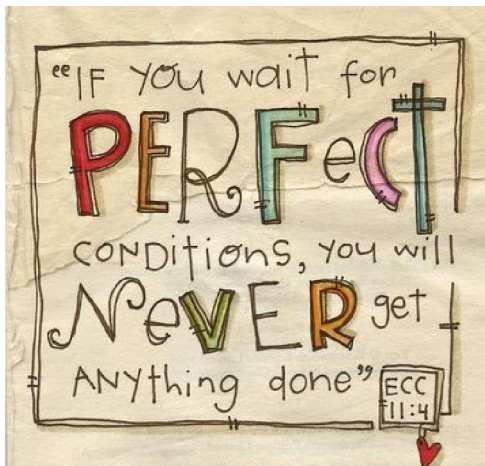 “IF you wait for
PERFecT
CONDitions, you will
NeVER get
ANYthing done”
ECC
11:4